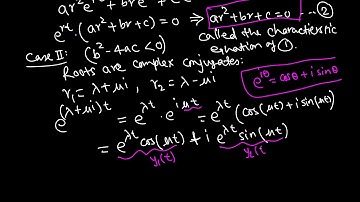 ar²e^{rt} + bre^{rt} + ce^{rt} = 0
e^{rt}.(ar²+br+c)=0 ⇒ ar²+br+c=0 .. ②
called the characteristic
equation of ①.
Case II: (b²-4ac<0)
Roots are complex conjugates:
r₁ = λ+μi , r₂ = λ-μi
e^{iθ} = cosθ + i sinθ
e^{(λ+μi)t} = e^{λt} . e^{iμt} = e^{λt} (cos(μt)+i sin(μt))
= e^{λt} cos(μt) + i e^{λt} sin(μt)
y₁(t) y₂(t